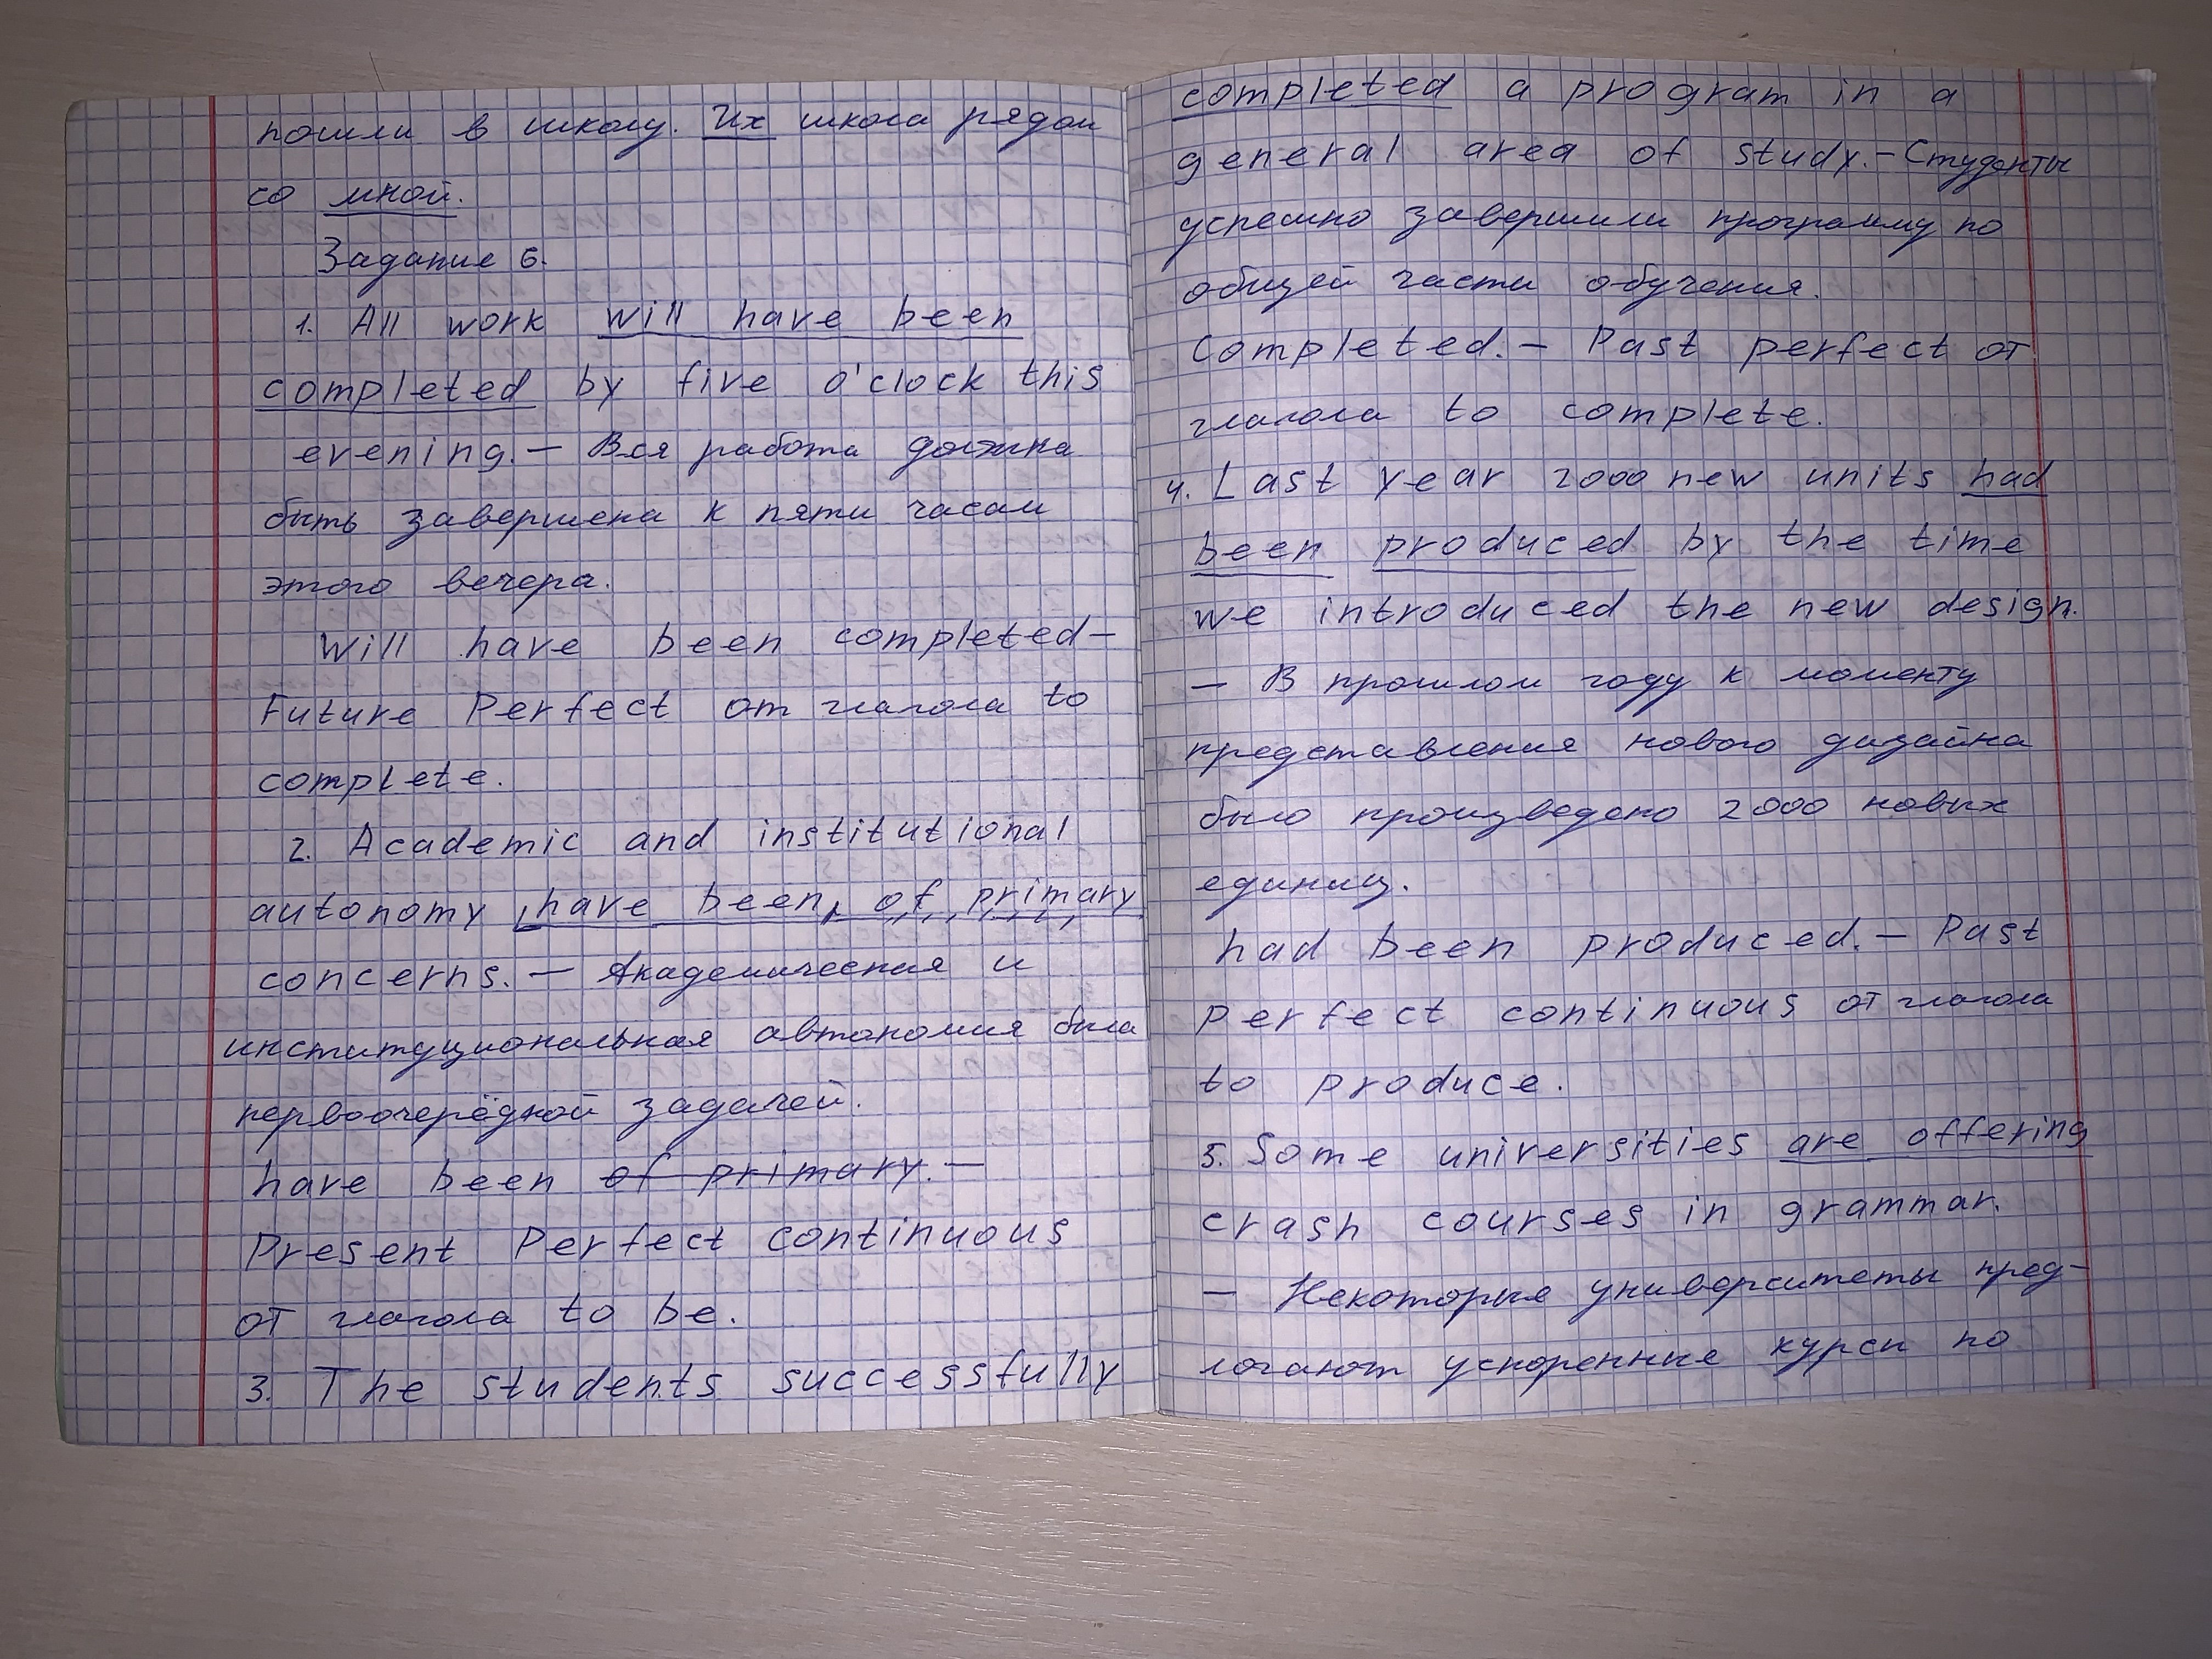 пошли в школу. Их школа рядом
со мной.
Задание 6.
1. All work will have been
completed by five o'clock this
evening. – Вся работа должна
быть завершена к пяти часам
этого вечера.
Will have been completed –
Future Perfect от глагола to
complete.
2. Academic and institutional
autonomy have been of primary
concerns. – Академическая и
институциональная автономия была
первоочерёдной задачей.
have been of primary. –
Present Perfect continuous
от глагола to be.
3. The students successfully
completed a program in a
general area of study. – Студенты
успешно завершили программу по
общей части обучения.
Completed. – Past perfect от
глагола to complete.
4. Last year 2000 new units had
been produced by the time
we introduced the new design.
– В прошлом году к моменту
представления нового дизайна
было произведено 2000 новых
единиц.
had been produced. – Past
perfect continuous от глагола
to produce.
5. Some universities are offering
crash courses in grammar.
– Некоторые университеты пред-
логают ускоренные курсы по